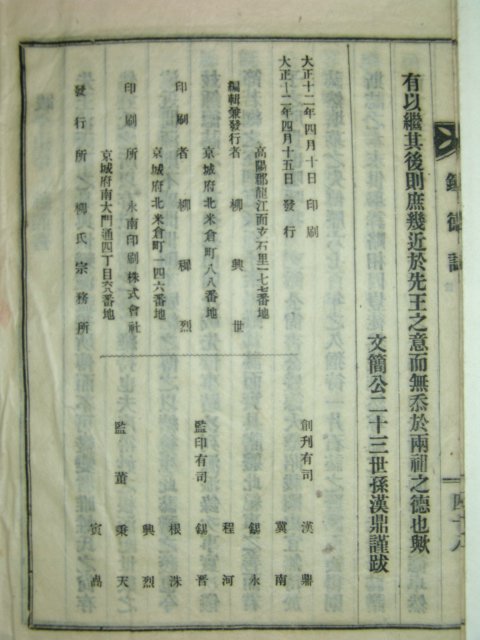 有以繼其後則庶幾近於先王之意而無忝於兩祖之德也歟
文簡公二十三世孫漢鼎謹跋
大正十二年四月十日印刷
大正十二年四月十五日發行
高陽郡龍江面玄石里一七番地
編輯兼發行者 柳興世
京城府北米倉町八八番地
印刷者 柳穉烈
京城府北米倉町一四六番地
印刷所 永南印刷株式會社
京城府南大門通四丁目六八番地
發行所 柳氏宗務所
創刊有司 漢鼎
冀南
錫永
程河
監印有司 錫晋
根洙
興烈
監董 秉天
寅卨
四十八